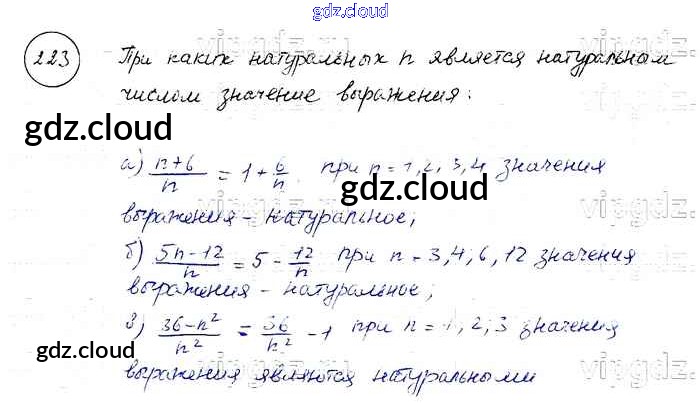 gdz.cloud
223 При каких натуральных n является натуральным
числом значение выражения:
gdz.cloud
а) (n+6)/n = 1 + 6/n при n = 1, 2, 3, 4 значения
gdz.cloud
выражения - натуральное;
б) (5n-12)/n = 5 - 12/n при n - 3, 4, 6, 12 значения
выражения - натуральное;
з) (36-n²)/n² = 36/n² - 1 при n = 1, 2, 3 значения
gdz.cloud
выражения являются натуральными
gdz.cloud